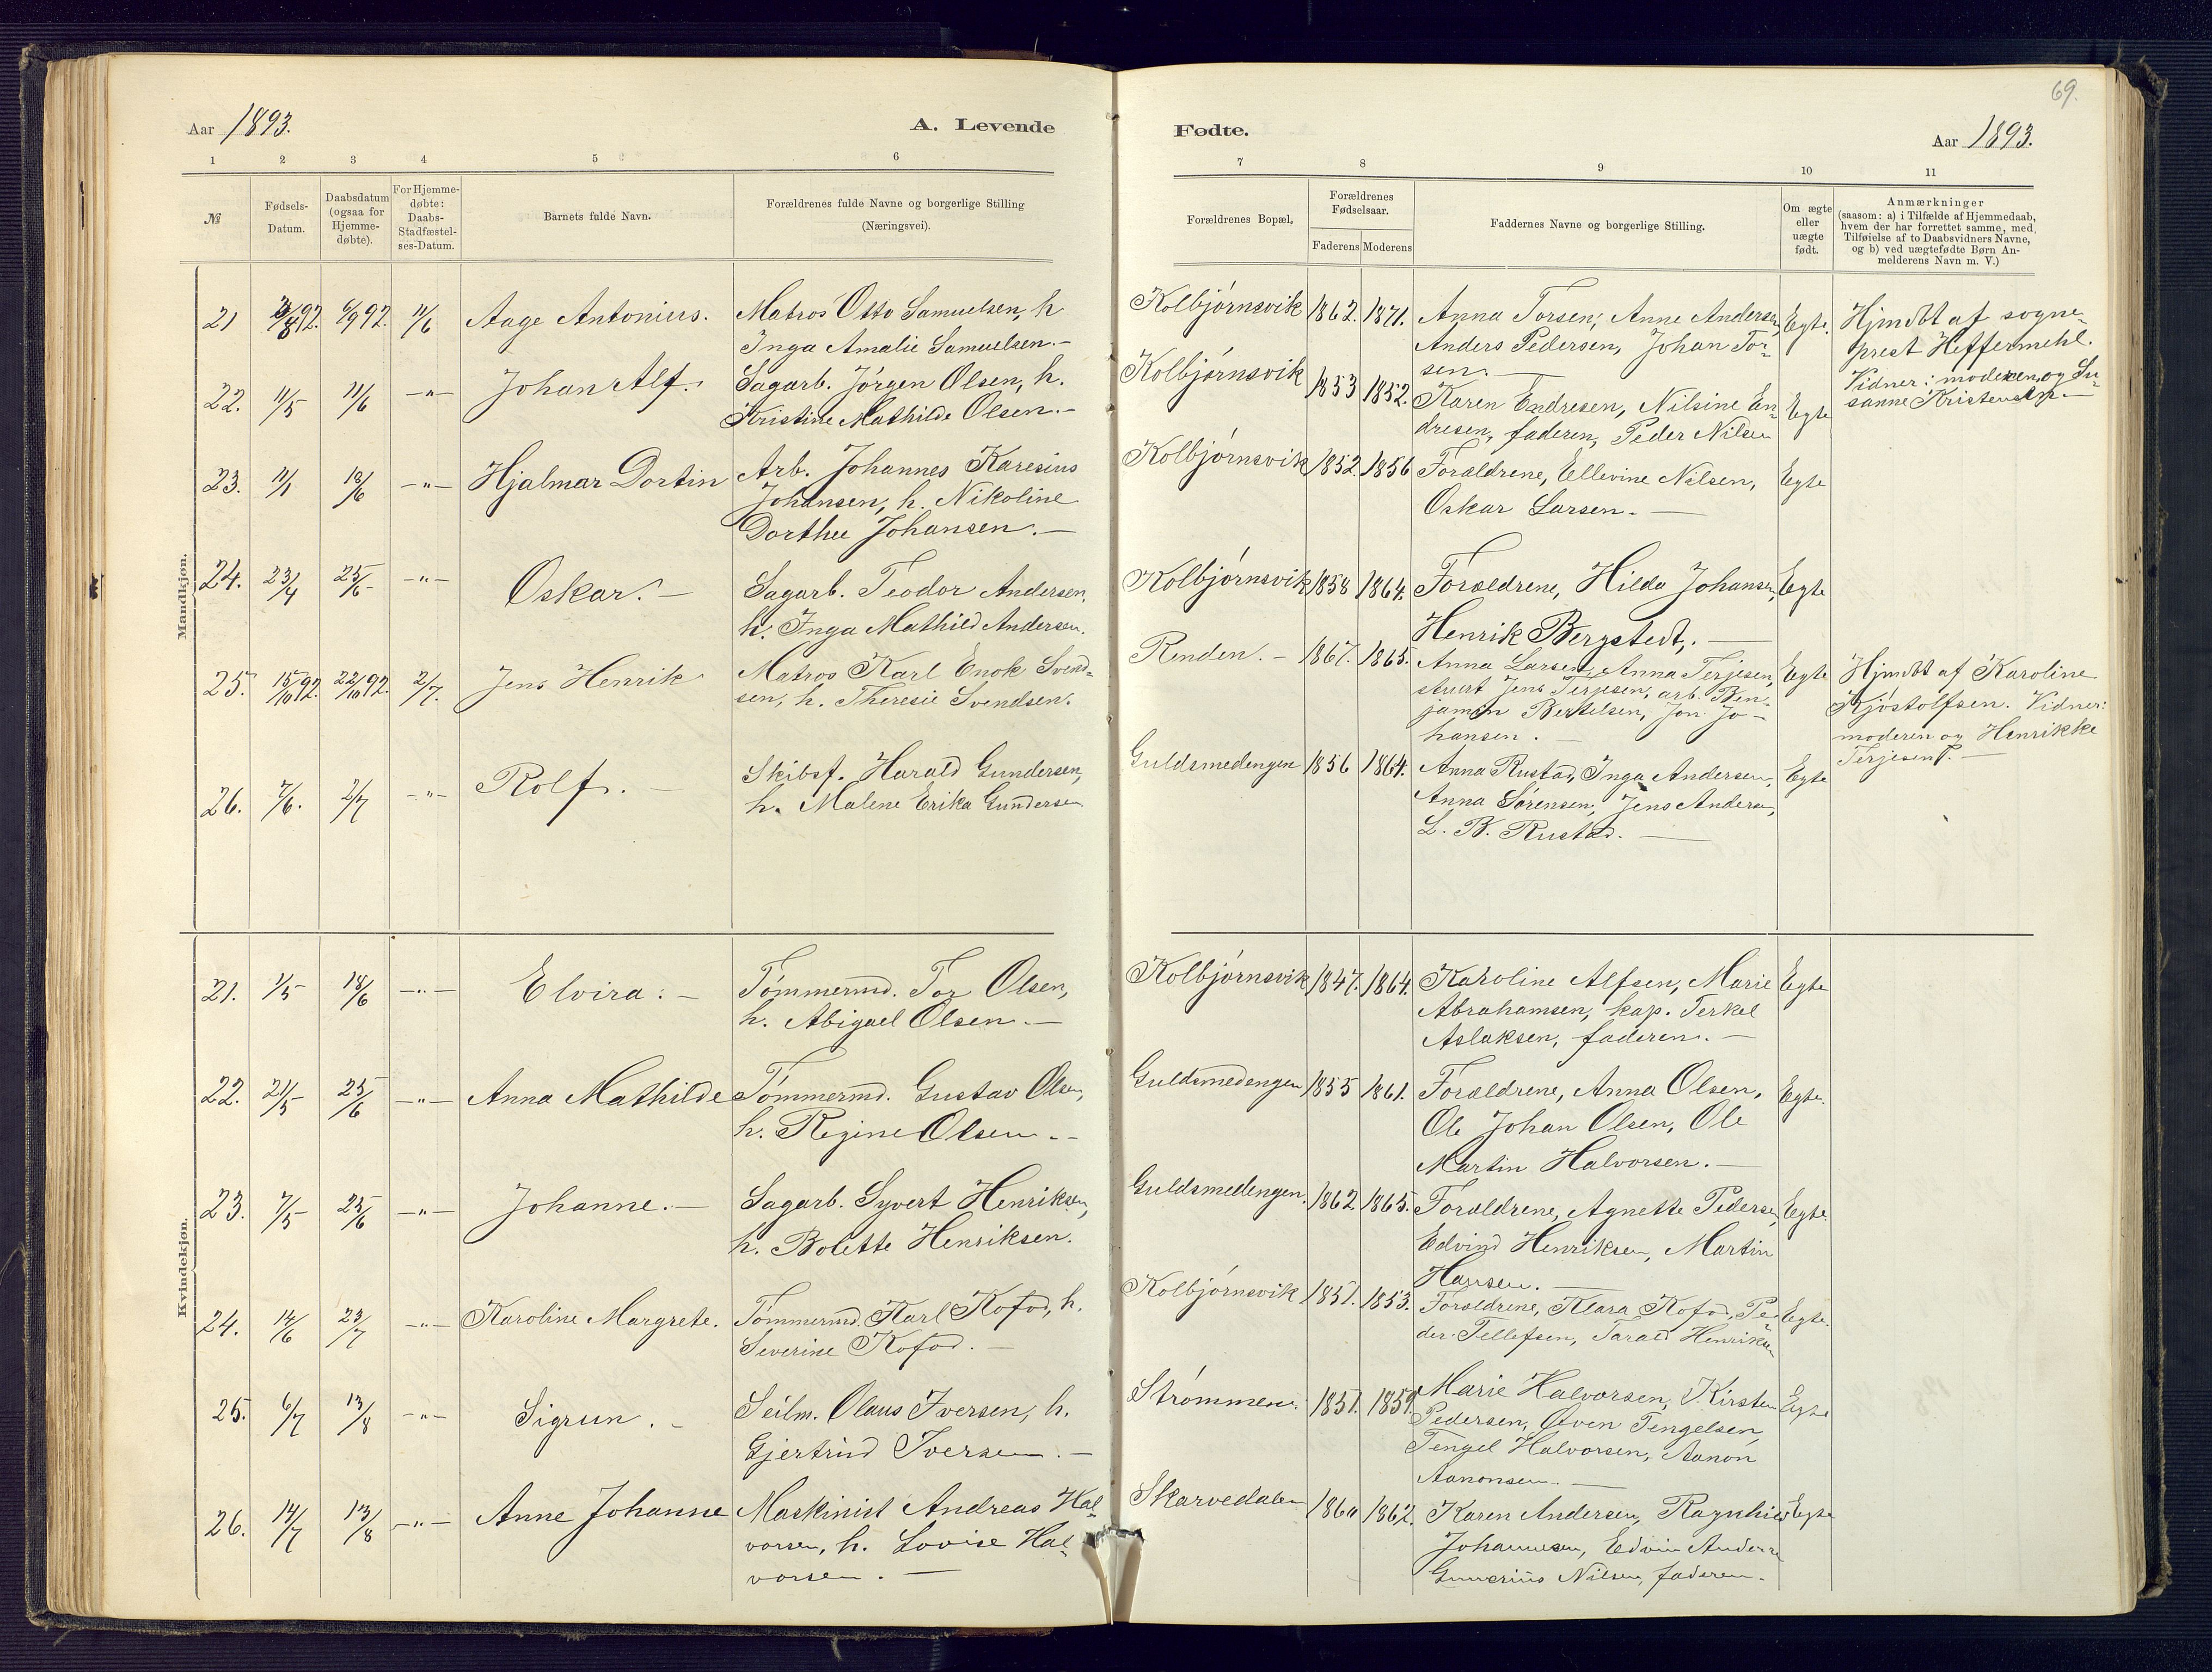 69.
Aar 1893.
A. Levende
Fødte.
Aar 1893.
1 2 3 4 5 6
7 8 9 10 11
№
Fødsels-
Datum.
Daabsdatum
(ogsaa for
Hjemme-
døbte).
For Hjemme-
døbte:
Daabs-
Stadfæstel-
ses-Datum.
Barnets fulde Navn.
Forældrenes fulde Navne og borgerlige Stilling
(Næringsvei).
Forældrenes Bopæl,
Forældrenes
Fødselsaar.
Faderens Moderens
Faddernes Navne og borgerlige Stilling.
Om ægte
eller
uægte
født.
Anmærkninger
(saasom: a) i Tilfælde af Hjemmedaab,
hvem der har forrettet samme, med
Tilføielse af to Daabsvidners Navne,
og b) ved uægtefødte Børn An-
melderens Navn m. V.)
Mandkjøn.
21 /8 92. 6/9 92. 11/6 Aage Antonius.
Matros Otto Samuelsen, h
Inga Amalie Samuelsen.-
Kolbjørnsvik 1862. 1871.
Anna Torsen, Anne Andersen,
Anders Pedersen, Johan Tor-
sen.
Egte.
Hjmdbt af sogne-
prest Heffermehl.
Vidner: moderen og Su-
sanne Kristensen.-
22. 11/5 11/6 -"- Johan Alf.
Sagarb. Jørgen Olsen, h.
Kristine Mathilde Olsen.-
Kolbjørnsvik 1853 1852.
Karen Endresen, Nilsine En-
dresen, faderen, Peder Nilsen
Egte
23. 11/1 18/6 -"- Hjalmar Dortin
Arb. Johannes Karesius
Johansen, h. Nikoline
Dorthee Johansen.-
Kolbjørnsvik 1852. 1856
Forældrene, Ellevine Nilsen,
Oskar Larsen.-
Egte
24. 23/4 25/6 -"- Oskar.-
Sagarb. Teodor Andersen,
h. Inga Mathild Andersen.
Kolbjørnsvik 1858 1864.
Forældrene, Hilda Johansen,
Henrik Bergstedt.
Egte
25. 15/10 92. 22/10 92. 2/7. Jens Henrik
Matros Karl Enok Svend-
sen, h. Theresie Svendsen.
Renden.- 1867. 1865.
Anna Larsen, Anna Terjesen,
stuert Jens Terjesen, arb. Ben-
jamin Bertelsen, Jon Jo-
hansen.
Egte
Hjmdbt af Karoline
Kjøstolfsen. Vidner:
moderen og Henrikke
Terjesen.-
26. 7/6. 2/7 -"- Rolf.-
Skibsf. Harald Gundersen,
h. Malene Erika Gundersen
Guldsmedengen 1856 1864.
Anna Rustad, Inga Andersen,
Anna Sørensen, Jens Andersen,
L. B. Rustad.-
Egte
Kvindekjøn.
21. 1/5 18/6 -"- Elvira.-
Tømmermd. Tor Olsen,
h. Abigael Olsen.-
Kolbjørnsvik 1847. 1864.
Karoline Alfsen, Marie
Abrahamsen, kap. Terkel
Aslaksen, faderen.-
Egte
22. 21/5 25/6 -"- Anna Mathilde
Tømmermd. Gustav Olsen,
h. Regine Olsen.-
Guldsmedengen 1855 1861.
Forældrene, Anna Olsen,
Ole Johan Olsen, Ole
Martin Halvorsen.-
Egte.
23. 7/5 25/6 -"- Johanne.-
Sagarb. Syvert Henriksen,
h. Bolette Henriksen.
Guldsmedengen. 1862 1865.
Forældrene, Agnette Pedersen,
Edvind Henriksen, Martin
Hansen.-
Egte.
24. 14/6 23/7 -"- Karoline Margrete.
Tømmermd. Karl Kofod, h.
Severine Kofod.-
Kolbjørnsvik 1851. 1853.
Forældrene, Klara Kofod, Pe-
der Tellefsen, Tarald Henriksen
Egte.
25. 6/7 13/8 -"- Sigrun.-
Seilm. Olaus Iversen, h.
Gjertrud Iversen.-
Strømmen. 1851. 1859.
Marie Halvorsen, Kirsten
Pedersen, Even Tengelsen,
Tengel Halvorsen, Aanon
Aanonsen.-
Egte
26. 14/7 13/8 -"- Anne Johanne
Maskinist Andreas Hal-
vorsen, h. Lovise Hal-
vorsen.-
Skarvedalen 1860 1862.
Karen Andersen, Ragnhild
Johannesen, Edvin Andersen
Gunerius Nilsen, faderen.
Egte